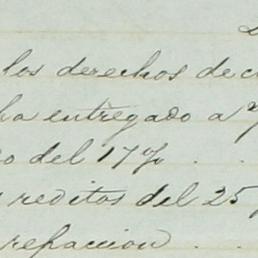 los derechos de
ha entregado a
del 17 %
reditos del 25
refaccion